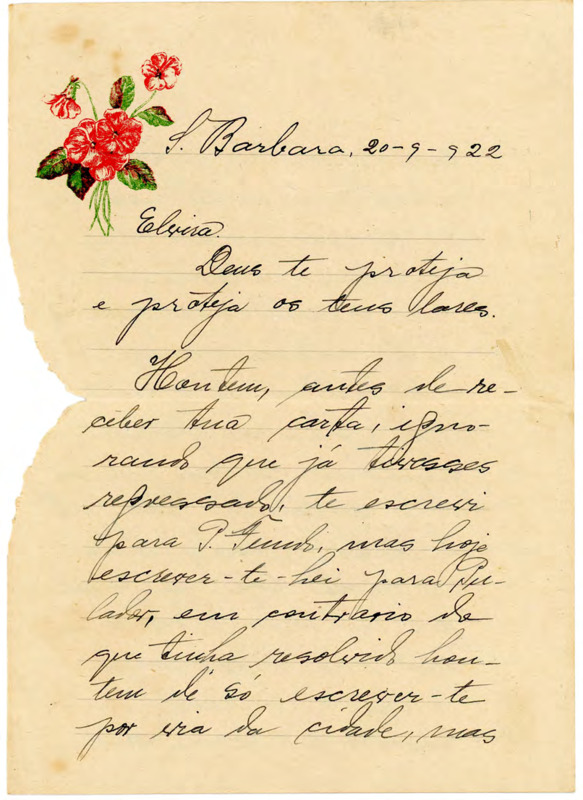 S. Barbara, 20-9-922
Elvira.
Deus te proteja
e proteja os teus lares.
Hontem, antes de re-
ceber tua carta, igno-
rando que já tivesses
regressado, te escrevi
para P. Fundo, mas hoje
escrever-te-hei para Pu-
lador, em contrario do
que tinha resolvido hon-
tem de só escrever-te
por via da cidade, mas